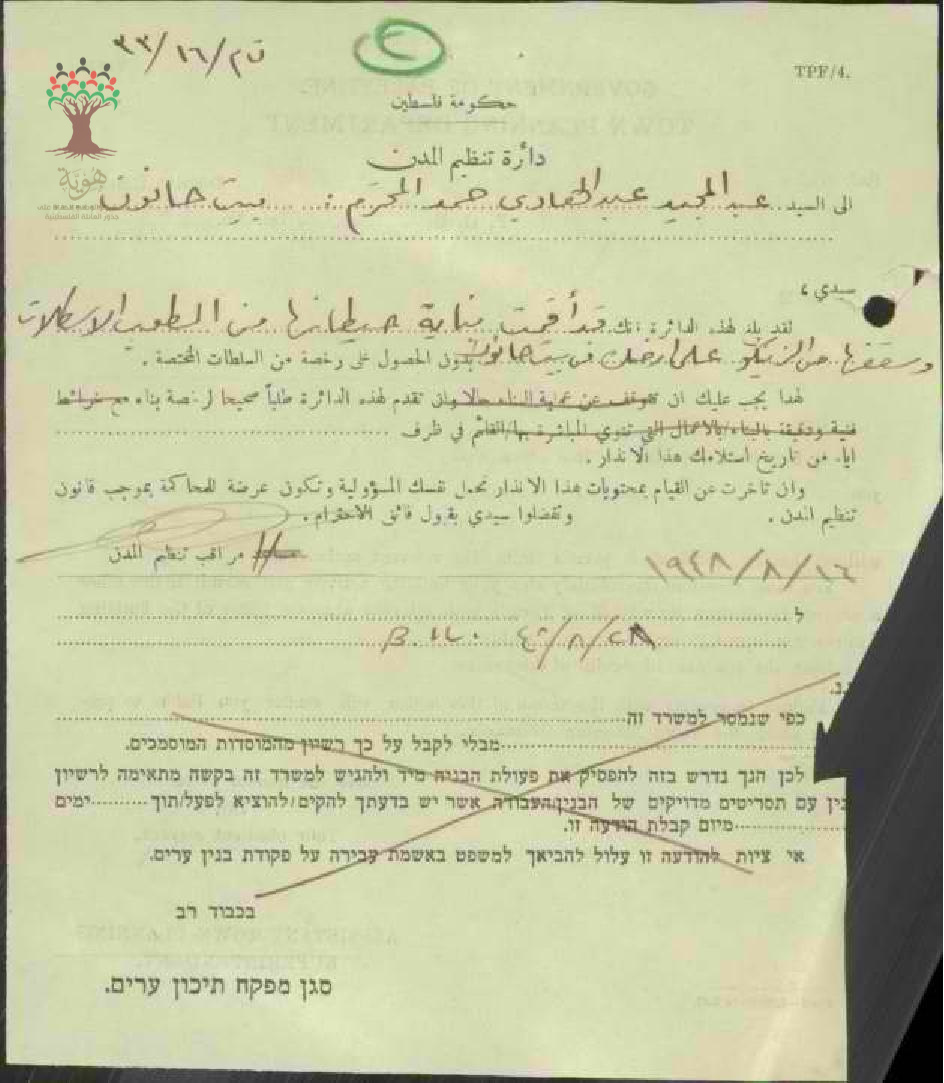 ت ن/١٦/٣٣
TPF/4.
حكومة فلسطين
دائرة تنظيم المدن
هوية
جذور العائلة الفلسطينية
الى السيد عبد المجيد عبد الهادي حمد المحترم : بيت حانون
سيدي ،
لقد بلغ لهذه الدائرة انك قد أقمت بناية حيطانها من الطوب الاسمنت
وسقفها من الزينكو على ارضك في بيت حانون بدون الحصول على رخصة من السلطات المختصة .
لهذا يجب عليك ان تتوقف عن عملية البناء حالا وان تقدم لهذه الدائرة طلباً صحيحاً لرخصة بناء مع خرائط
فنية ودقيقة بالبناء/بالاعمال التي تنوي المباشرة بها/القائم في ظرف
ايام من تاريخ استلامك هذا الانذار .
وان تاخرت عن القيام بمحتويات هذا الانذار تحمل نفسك المسؤولية وتكون عرضة للمحاكمة بموجب قانون
تنظيم المدن . وتفضلوا سيدي بقبول فائق الاحترام .
مراقب تنظيم المدن
١٦/٨/١٩٤٧
ל
א.נ.
כפי שנמסר למשרד זה
מבלי לקבל על כך רשיון מהמוסדות המוסמכים.
לכן הנך נדרש בזה להפסיק את פעולת הבניה מיד ולהגיש למשרד זה בקשה מתאימה לרשיון
בנין עם תסריטים מדויקים של הבנין/העבודה אשר יש בדעתך להקים/להוציא לפעל/תוך ימים
מיום קבלת הודעה זו.
אי ציות להודעה זו עלול להביאך למשפט באשמת עבירה על פקודת בנין ערים.
בכבוד רב
סגן מפקח תיכון ערים.